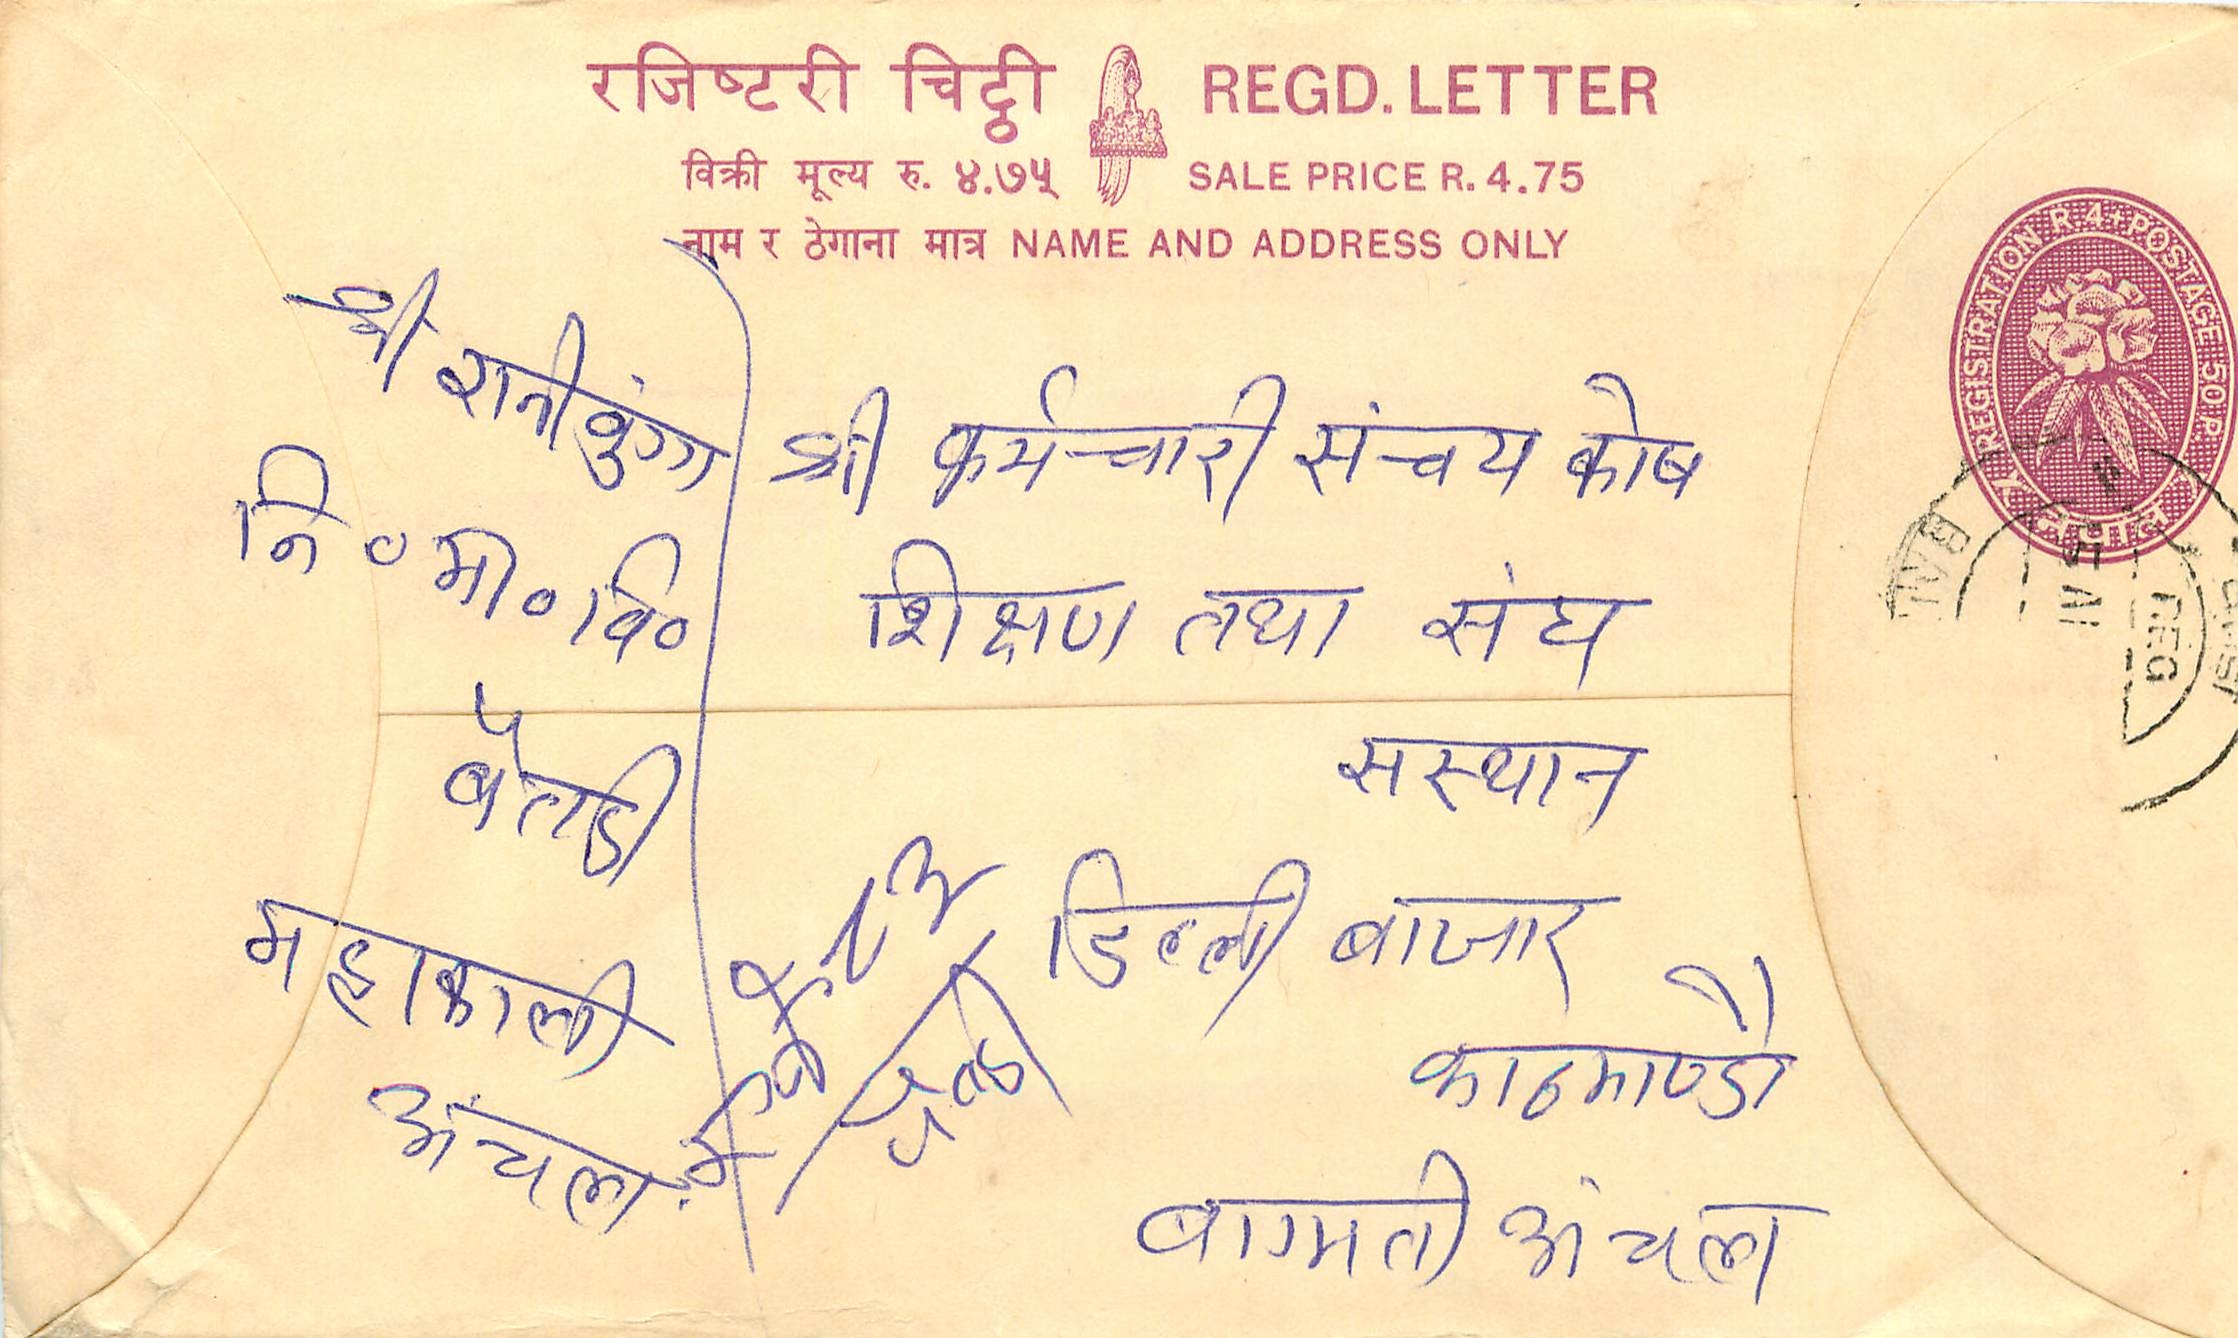 रजिष्टरी चिट्ठी REGD. LETTER
विक्री मूल्य रु. ४.७५ SALE PRICE R. 4.75
नाम र ठेगाना मात्र NAME AND ADDRESS ONLY
REGISTRATION R 4+POSTAGE 50 P.
नेपाल
REG
श्री
नि० मा० वि०
बैतडी
महाकाली
अंचल
श्री कर्मचारी संचय कोष
शिक्षण तथा संघ
सस्थान
डिल्ली बाजार
काठमाण्डौ
बागमती अंचल